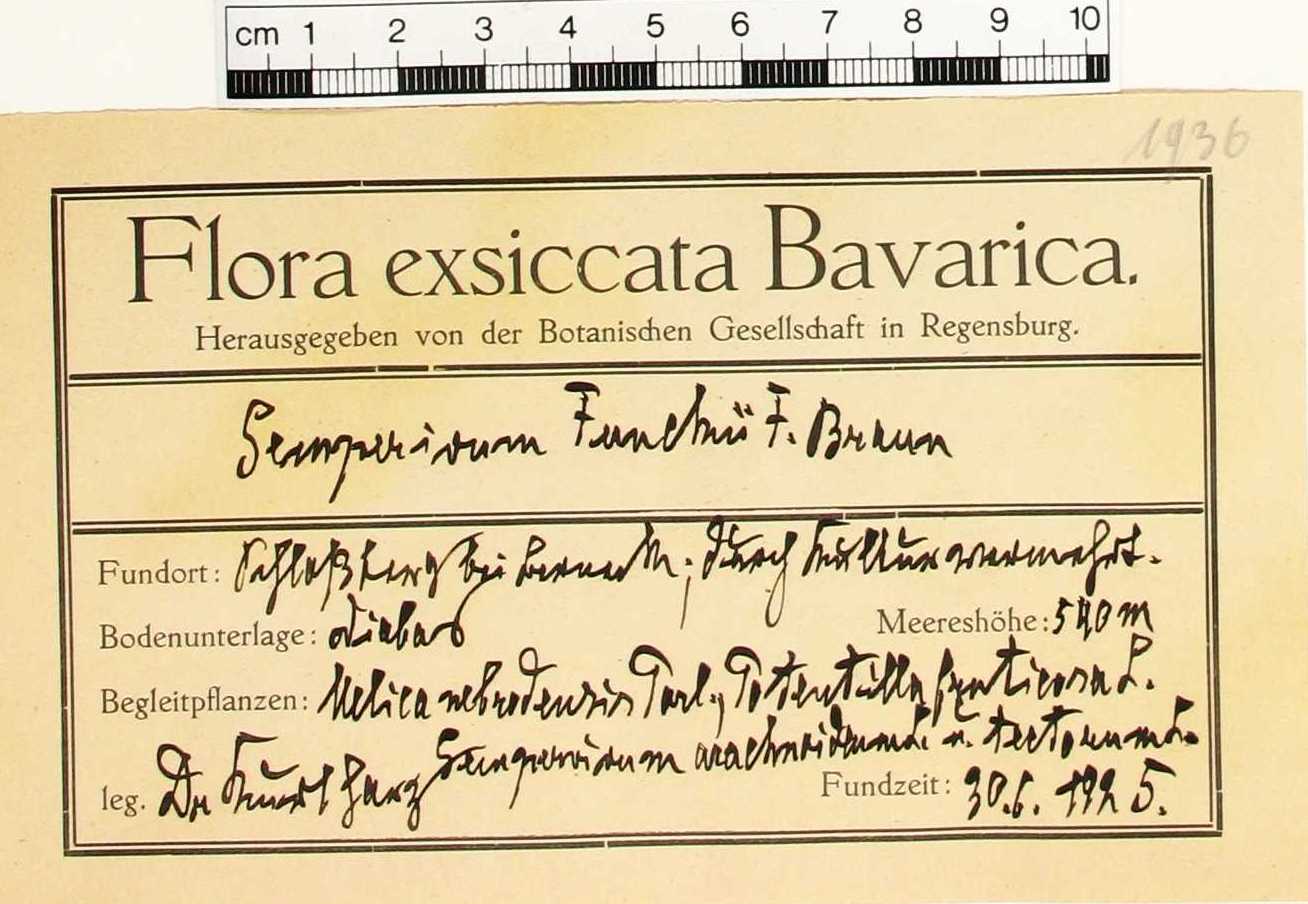 cm 1 2 3 4 5 6 7 8 9 10
1936
Flora exsiccata Bavarica.
Herausgegeben von der Botanischen Gesellschaft in Regensburg.
Sempervivum Funckii F. Braun
Fundort: Schloßberg bei Berneck; durch Kultur vermehrt.
Bodenunterlage: Diabas Meereshöhe: 540 m
Begleitpflanzen: Melica nebrodensis Parl., Potentilla fruticosa L.
Sempervivum arachnoideum L. u. tectorum L.
leg. Dr Kurt Harz Fundzeit: 30.6. 1925.